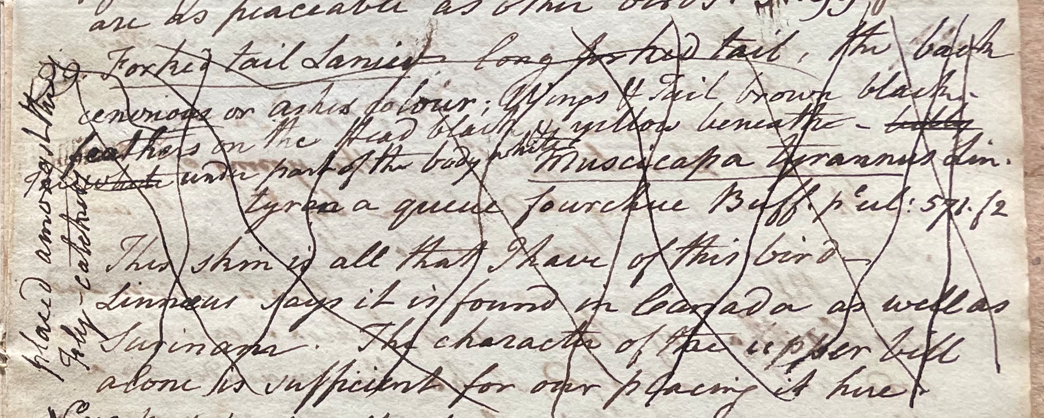 are as peaceable as other birds.
9. Forked tail Lanius long forked tail, the back
cenerious or ashes colour; Wings & Tail brown black.
feathers on the Head black, yellow beneathe -
The white under part of the body white Muscicapa tyrannus Lin.
tyran a queue fourchue Buff. pl. enl: 571. f2
This skin is all that I have of this bird -
Linnæus says it is found in Canada as well as
Surinam. The character of the upper bill
alone is sufficient for our placing it here.
placed amongst the
Fly-catchers